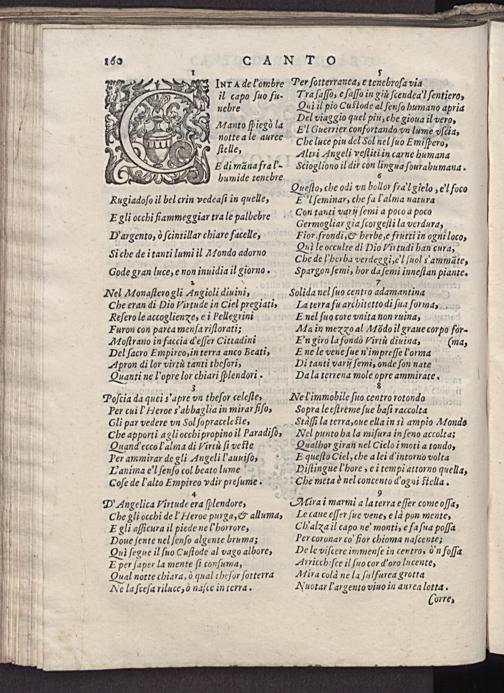 160
CANTO
1
CINTA de l'ombre
il capo suo fu-
nebre
Manto spiegò la
notte a le auree
stelle,
E di mãna fra l'-
humide tenebre
Rugiadoso il bel crin vedeasi in quelle,
E gli occhi fiammeggiar tra le palbebre
D'argento, ò scintillar chiare facelle,
Si che de i tanti lumi il Mondo adorno
Gode gran luce, e non inuidia il giorno.
2
Nel Monastero gli Angioli diuini,
Che eran di Dio Virtude in Ciel pregiati,
Resero le accoglienze, e i Pellegrini
Furon con parca mensa ristorati;
Mostrano in faccia d'esser Cittadini
Del sacro Empireo, in terra anco Beati,
Apron di lor virtù tanti thesori,
Quanti ne l'opre lor chiari splendori.
3
Poscia da quei s'apre vn thesor celeste,
Per cui l'Heroe s'abbaglia in mirar fiso,
Gli par vedere vn Sol sopraceleste,
Che apporti agli occhi propino il Paradiso,
Quand'ecco l'alma di Virtù si veste
Per ammirar de gli Angeli l'auuiso,
L'anima e'l senso col beato lume
Cose de l'alto Empireo vdir presume.
4
D'Angelica Virtude era splendore,
Che gli occhi de l'Heroe purga, & alluma,
E gli assicura il piede ne l'horrore,
Doue sente nel senso algente bruma;
Quì segue il suo Custode al vago albore,
E per saper la mente si consuma,
Qual notte chiara, ò qual thesor sotterra
Ne la scesa riluce, ò nasce in terra.
5
Per sotterranea, e tenebrosa via
Tra sasso, e sasso in giù scendea'l sentiero,
Quì il pio Custode al senso humano apria
Del viaggio quel piu, che gioua il vero,
E'l Guerrier confortando vn lume vscia,
Che luce piu del Sol nel suo Emispero,
Altri Angeli vestiti in carne humana
Sciogliono il dir con lingua sourahumana.
6
Questo, che odi vn bollor fra'l gielo, e'l foco
E'l seminar, che fa l'alma natura
Con tanti varij semi a poco a poco
Germogliar gia scorgesti la verdura,
Fior, frondi, & herbe, e frutti in ogni loco,
Quì le occulte di Dio Virtudi han cura,
Che de l'herba verdeggi, e'l suol s'ammãte,
Spargon semi, hor da semi innestan piante.
7
Solida nel suo centro adamantina
La terra fu architetto di sua forma,
E nel suo core vnita non ruina,
Ma in mezzo al Mõdo il graue corpo for-
E'n giro la fondò Virtù diuina, (ma,
E ne le vene sue n'impresse l'orma
Di tanti varij semi, onde son nate
Da la terrena mole opre ammirate.
8
Ne l'immobile suo centro rotondo
Sopra le estreme sue basi raccolta
Stassi la terra, oue ella in sì ampio Mondo
Nel punto ha la misura in seno accolta;
Qualhor girãn nel Cielo i moti a tondo,
E questo Ciel, che a lei d'intorno volta
Distingue l'hore, e i tempi attorno quella,
Che meta è nel concento d'ogni stella.
9
Mira i marmi a la terra esser come ossa,
Le caue esser sue vene, e là pon mente,
Ch'alza il capo ne' monti, e fa sua possa
Per coronar co' fior chioma nascente;
De le viscere immense in centro, ò'n fossa
Arricchisce il suo cor d'oro lucente,
Mira colà ne la sulfurea grotta
Nuotar l'argento viuo in aurea lotta.
Corre,